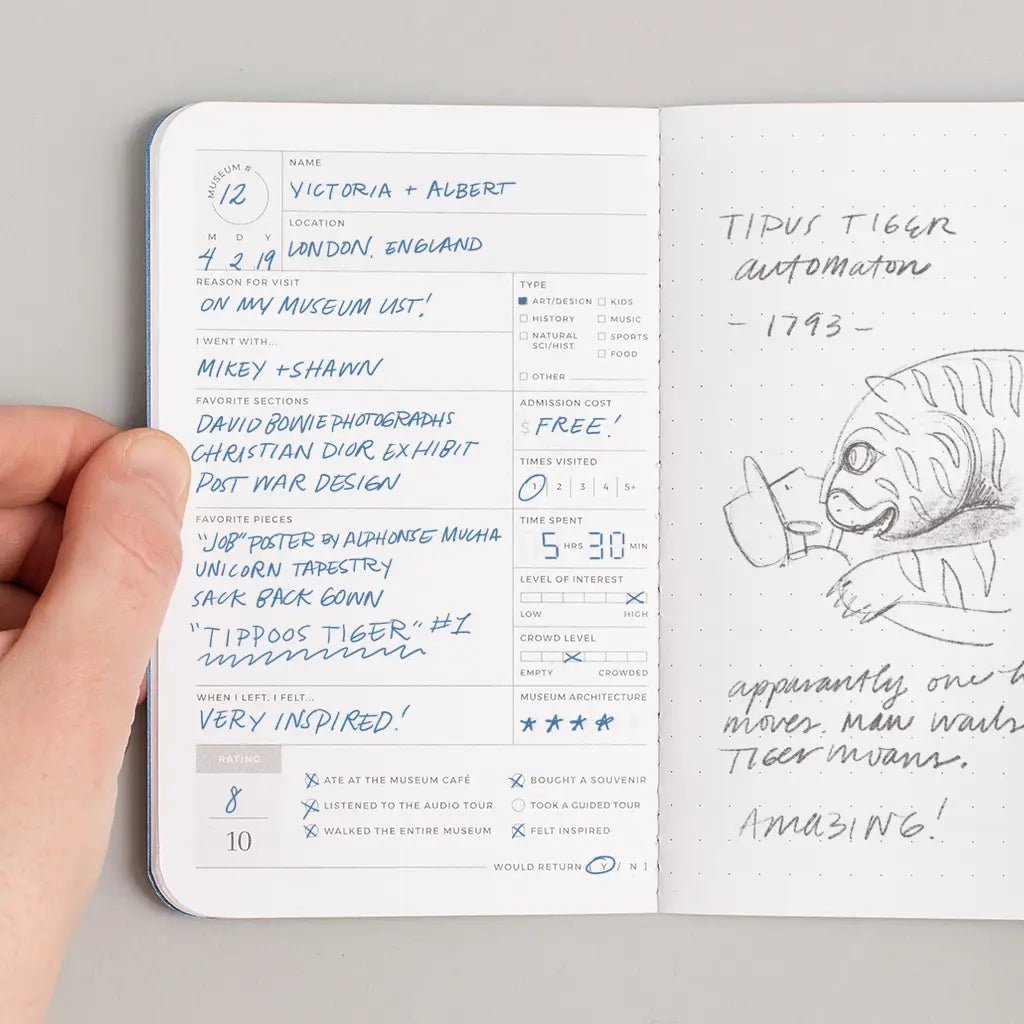 MUSEUM #
12
M D Y
4 2 19
NAME
VICTORIA + ALBERT
LOCATION
LONDON, ENGLAND
REASON FOR VISIT
ON MY MUSEUM LIST!
I WENT WITH...
MIKEY + SHAWN
FAVORITE SECTIONS
DAVID BOWIE PHOTOGRAPHS
CHRISTIAN DIOR EXHIBIT
POST WAR DESIGN
FAVORITE PIECES
"JOB" POSTER BY ALPHONSE MUCHA
UNICORN TAPESTRY
SACK BACK GOWN
"TIPPOOS TIGER" #1
WHEN I LEFT, I FELT...
VERY INSPIRED!
TYPE
ART/DESIGN KIDS
HISTORY MUSIC
NATURAL SCI/HIST SPORTS
FOOD
OTHER
ADMISSION COST
$ FREE!
TIMES VISITED
1 2 3 4 5+
TIME SPENT
5 HRS 30 MIN
LEVEL OF INTEREST
LOW HIGH
CROWD LEVEL
EMPTY CROWDED
MUSEUM ARCHITECTURE
RATING
8
10
ATE AT THE MUSEUM CAFÉ BOUGHT A SOUVENIR
LISTENED TO THE AUDIO TOUR TOOK A GUIDED TOUR
WALKED THE ENTIRE MUSEUM FELT INSPIRED
WOULD RETURN Y / N ]
TIPUS TIGER
automaton
- 1793 -
apparantly one
moves. Man wails
Tiger moans.
AMAZING!